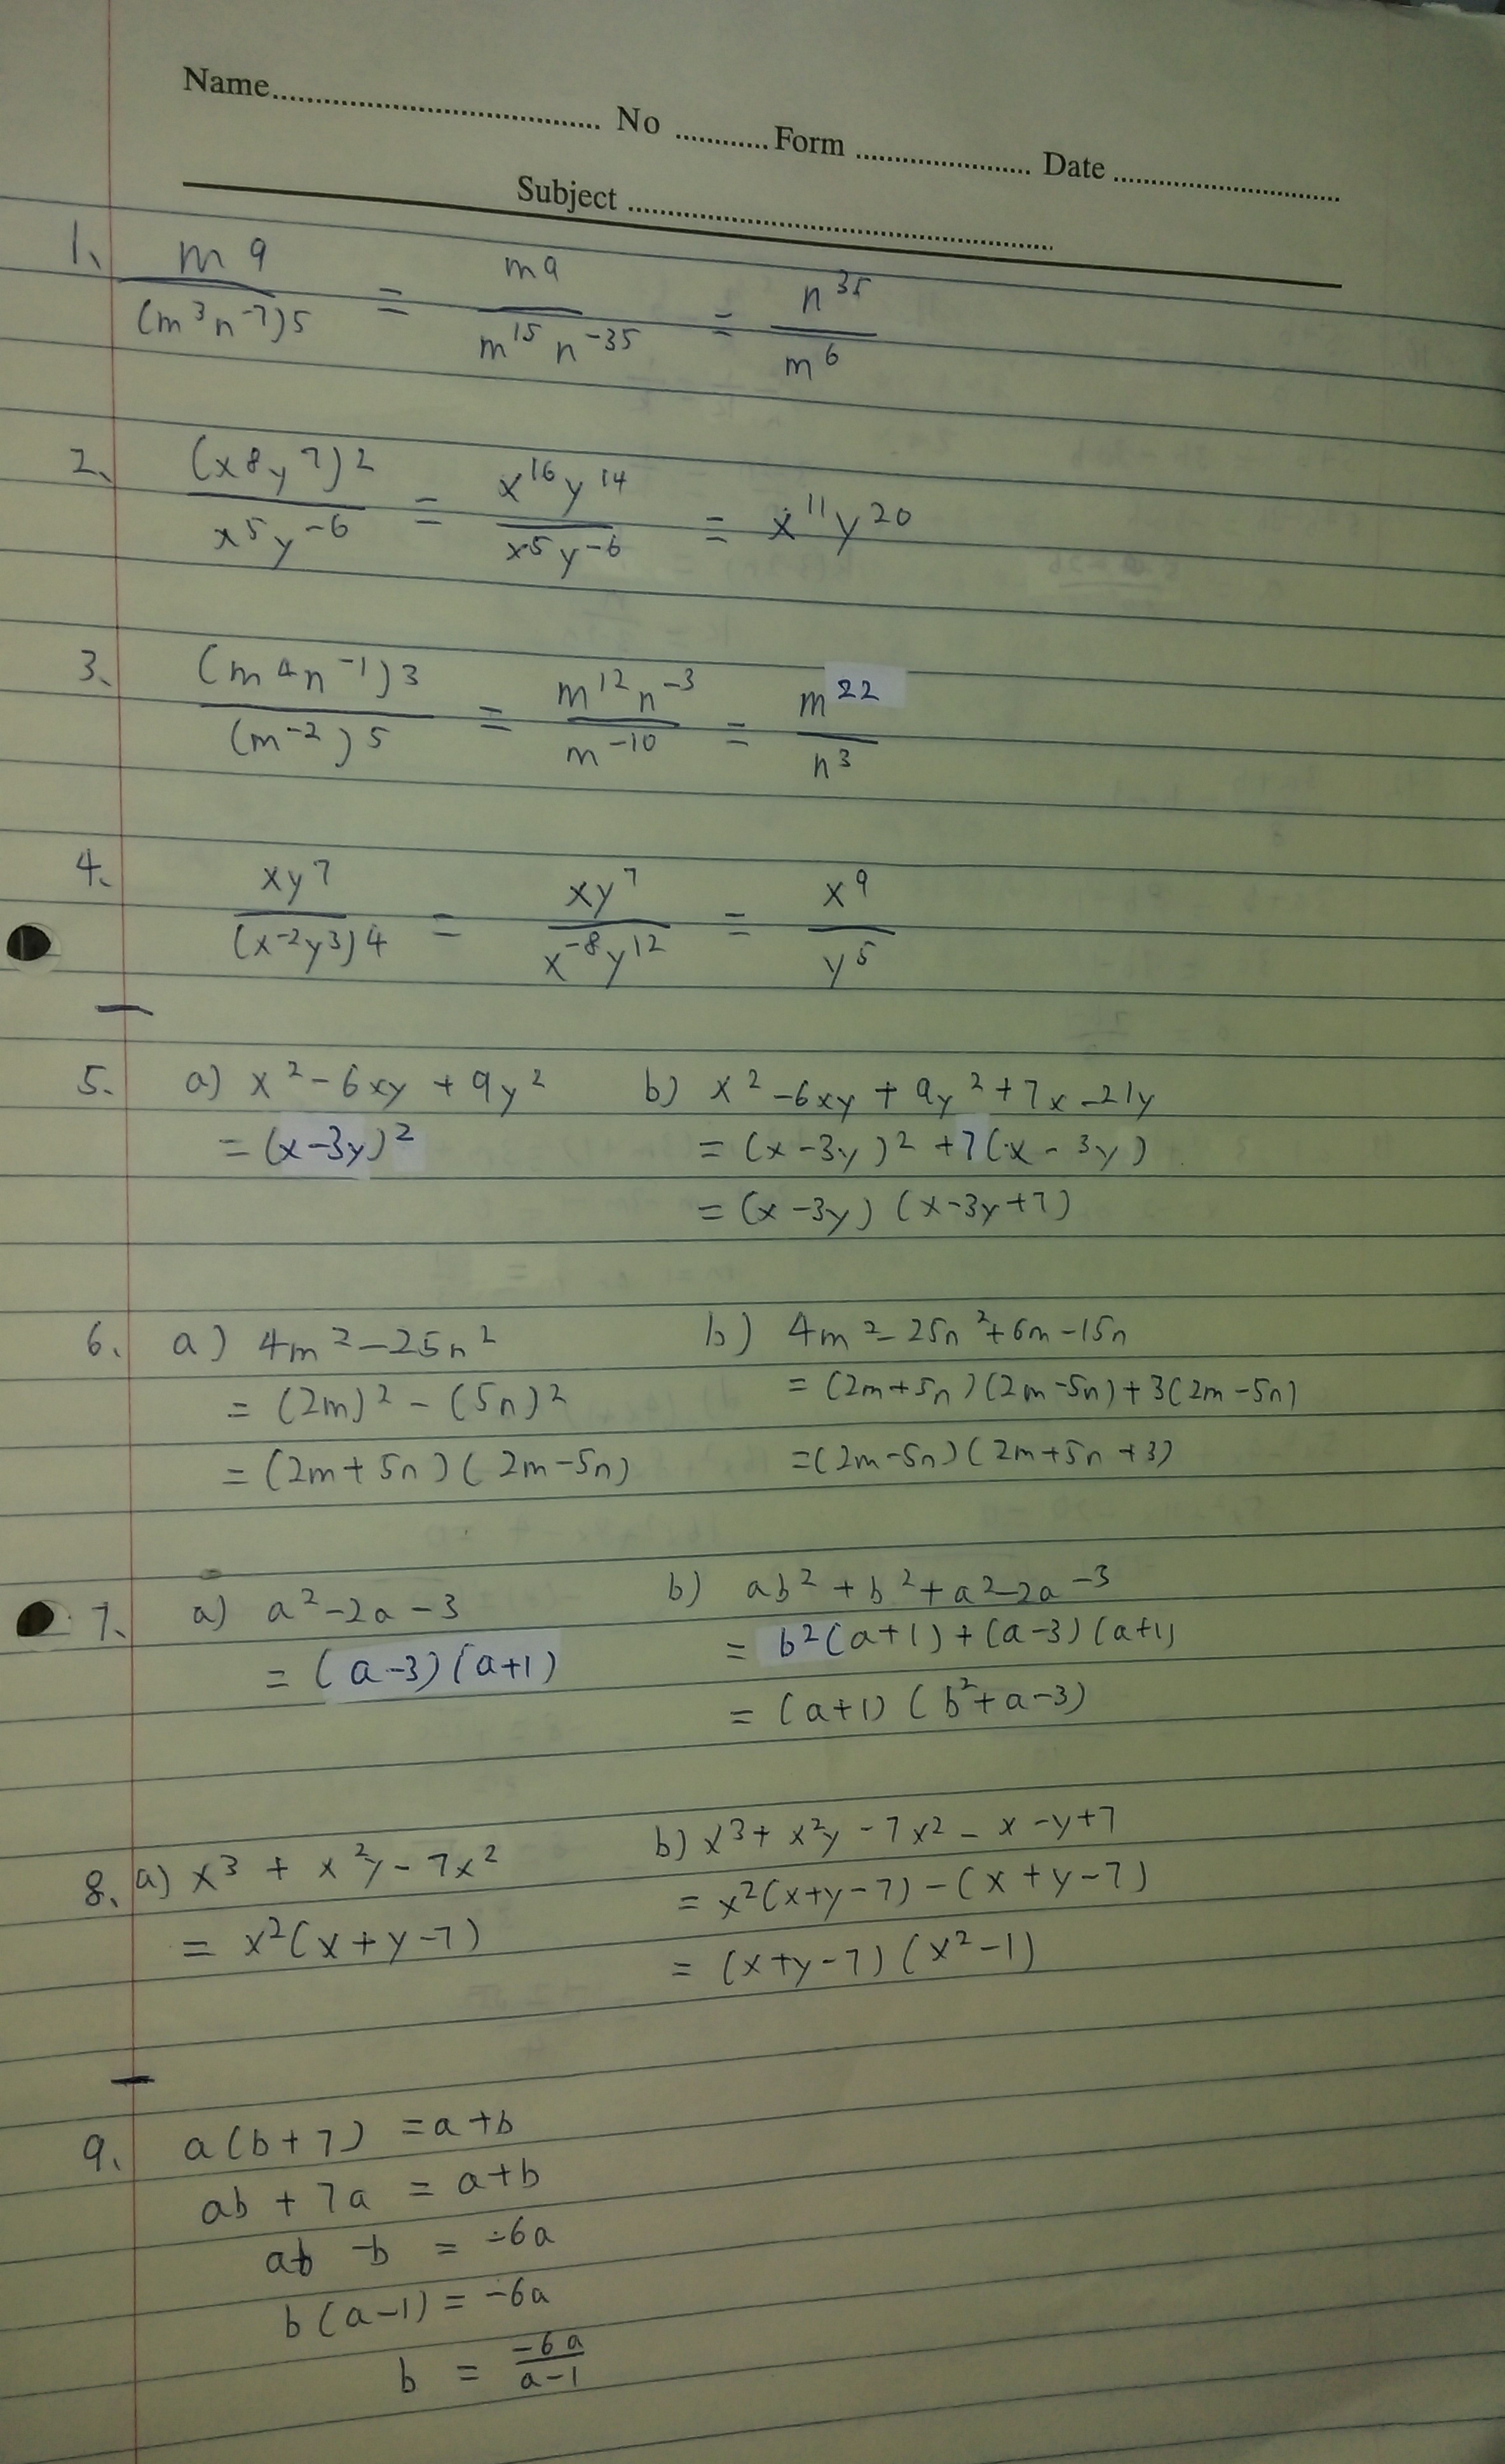 Name.................... No .......... Form .................... Date ....................
Subject ....................
1. m⁹/(m³n⁻⁷)⁵ = m⁹/m¹⁵n⁻³⁵ = n³⁵/m⁶
2. (x⁸y⁷)²/x⁵y⁻⁶ = x¹⁶y¹⁴/x⁵y⁻⁶ = x¹¹y²⁰
3. (m⁴n⁻¹)³/(m⁻²)⁵ = m¹²n⁻³/m⁻¹⁰ = m²²/n³
4. xy⁷/(x⁻²y³)⁴ = xy⁷/x⁻⁸y¹² = x⁹/y⁵
5. a) x²-6xy+9y² b) x²-6xy+9y²+7x-21y
= (x-3y)² = (x-3y)²+7(x-3y)
= (x-3y)(x-3y+7)
6. a) 4m²-25n² b) 4m²-25n²+6m-15n
= (2m)²-(5n)² = (2m+5n)(2m-5n)+3(2m-5n)
= (2m+5n)(2m-5n) =(2m-5n)(2m+5n+3)
7. a) a²-2a-3 b) ab²+b²+a²-2a-3
= (a-3)(a+1) = b²(a+1)+(a-3)(a+1)
= (a+1)(b²+a-3)
8. a) x³+x²y-7x² b) x³+x²y-7x²-x-y+7
= x²(x+y-7) = x²(x+y-7)-(x+y-7)
= (x+y-7)(x²-1)
9. a(b+7) =a+b
ab+7a = a+b
ab-b = -6a
b(a-1) = -6a
b = -6a/a-1